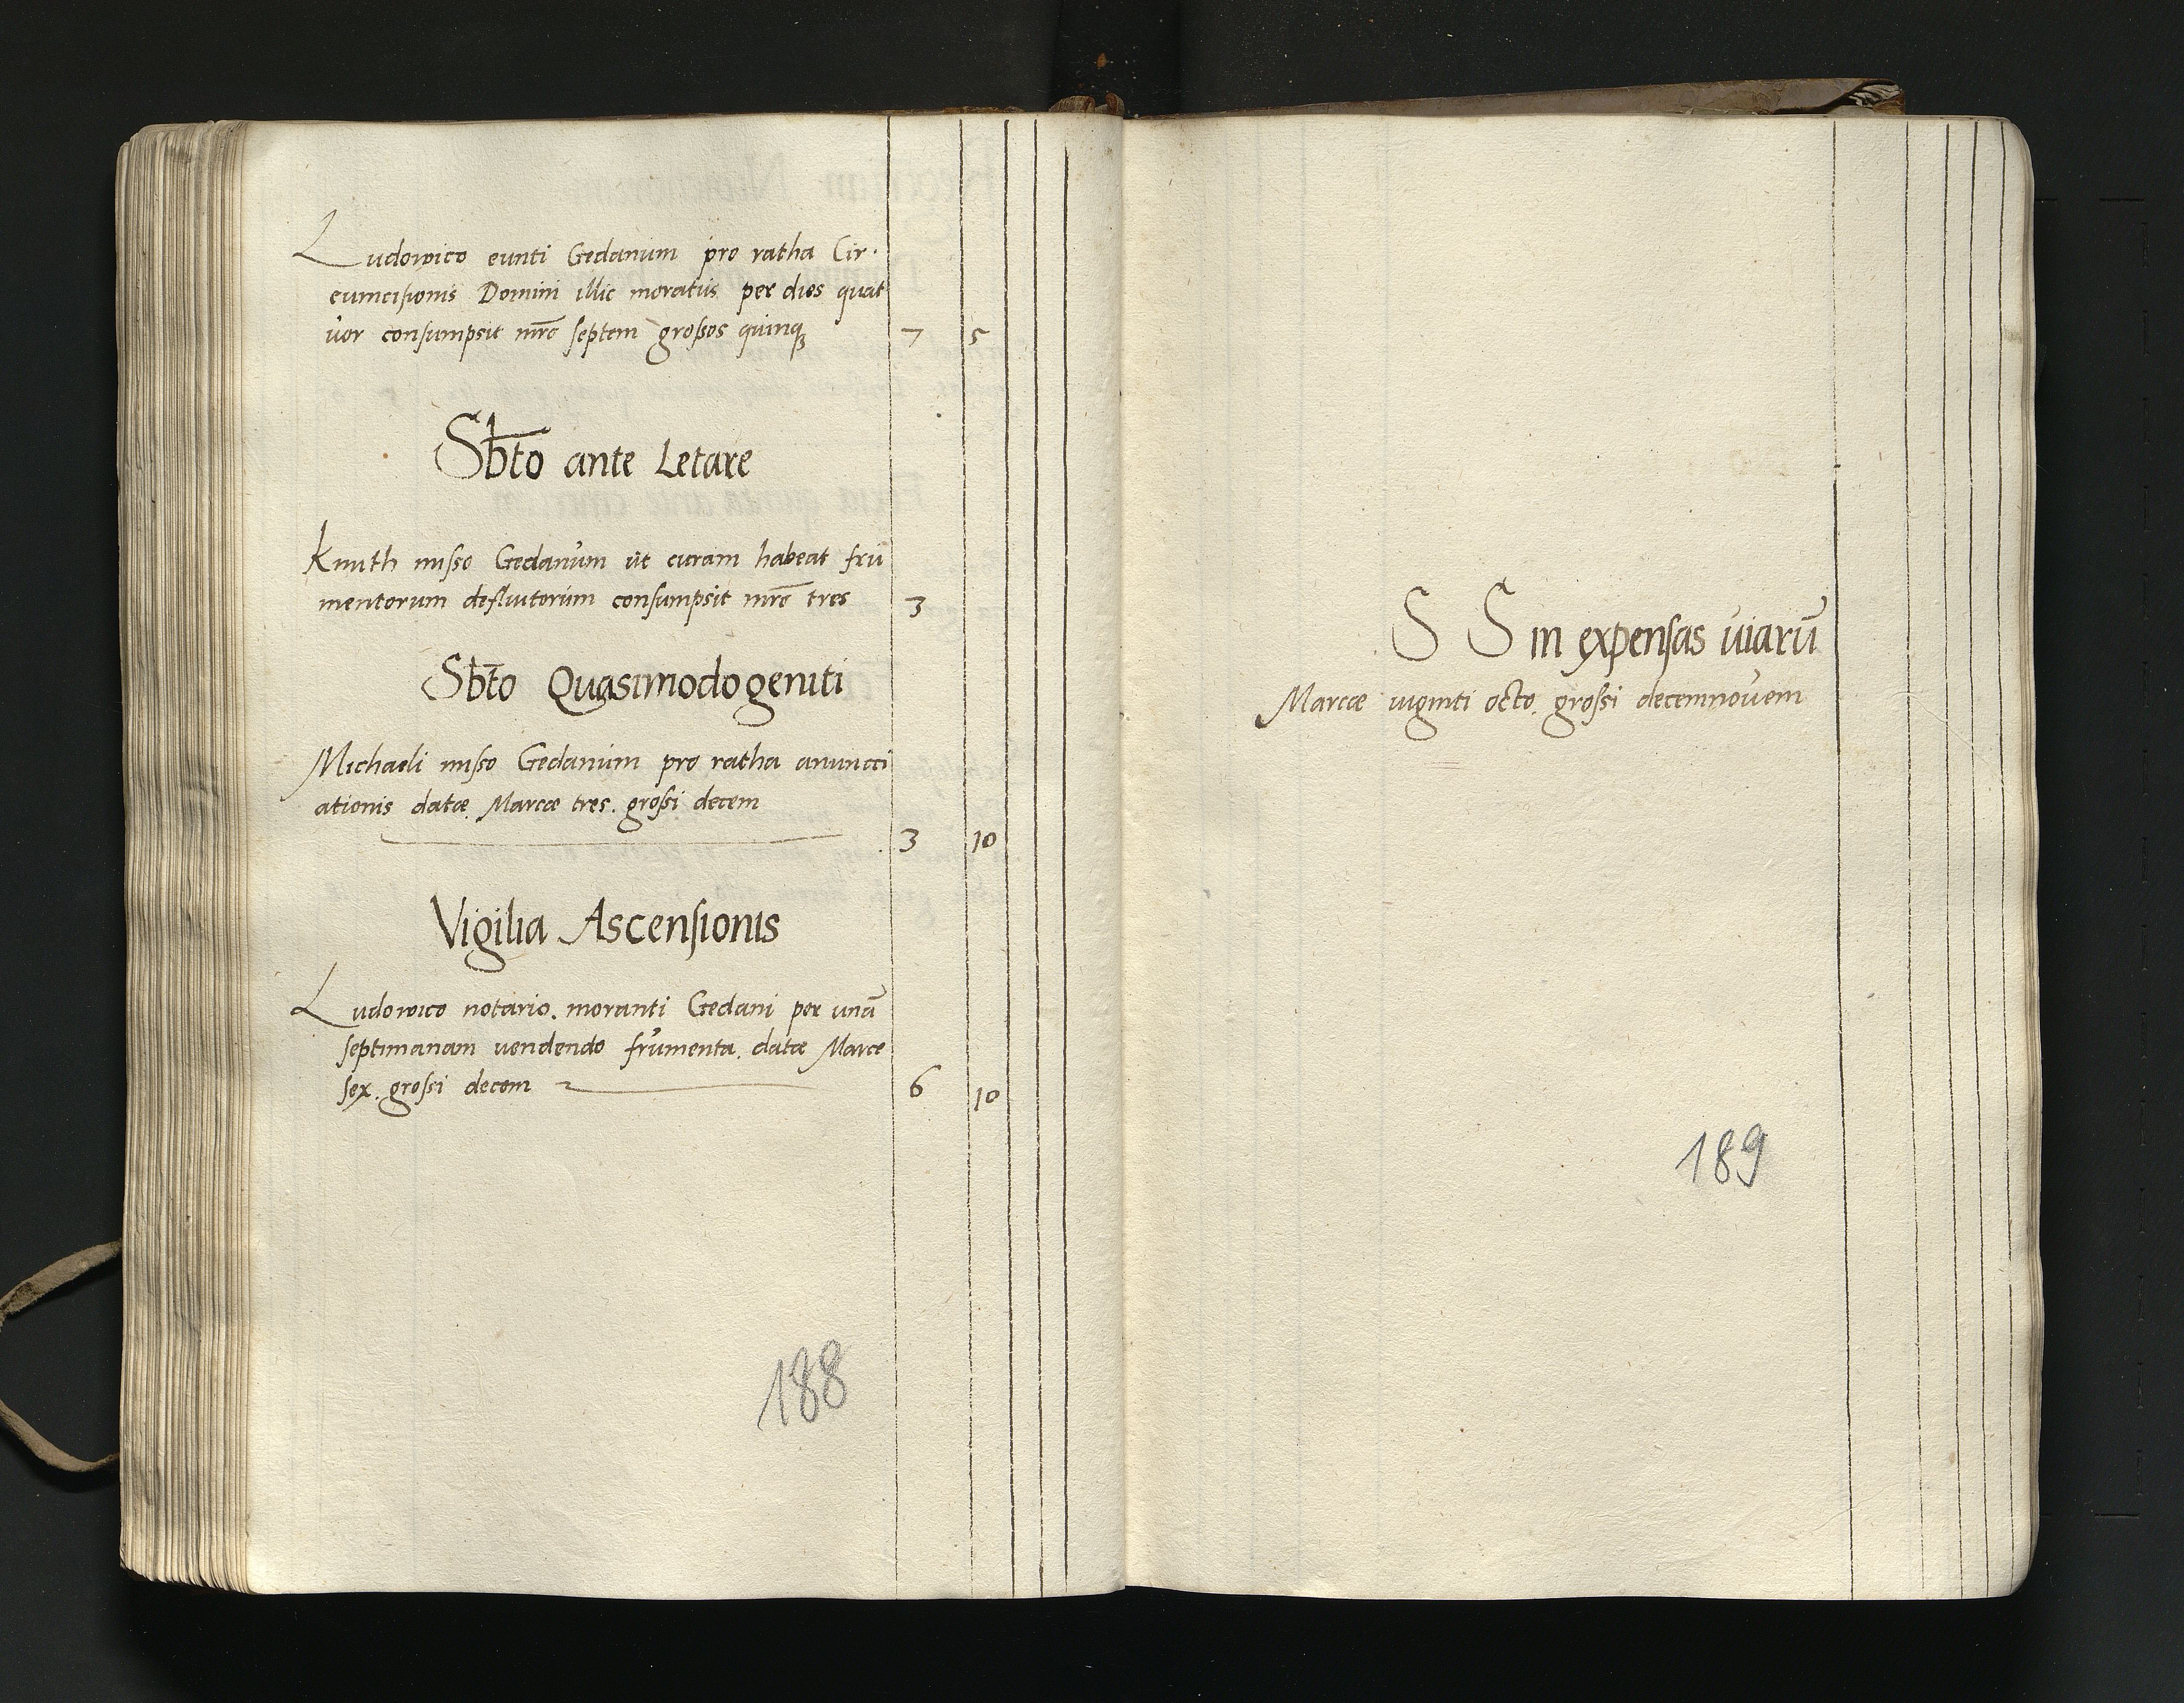 Ludowico eunti Gedanum pro ratha Cir·
cumcisionis Domini illic moratus per dies quat
uor consumpsit mrc̄ septem grossos quinqꝫ 7 5
Sbt̄o ante Letare
Knuth misso Gedanum ut curam habeat fru
mentorum defluitorum consumpsit mrc̄ tres 3
Sbt̄o Quasimodogeniti
Michaeli misso Gedanum pro ratha anuncci
ationis datæ Marcæ tres. grossi decem
3 10
Vigilia Ascensionis
Ludowico notario. moranti Gedani per unā
septimanam uendendo frumenta. datæ Marce
sex. grossi decem 6 10
188
S S in expensas uiarū
Marcæ uiginti octo. grossi decemnouem
189